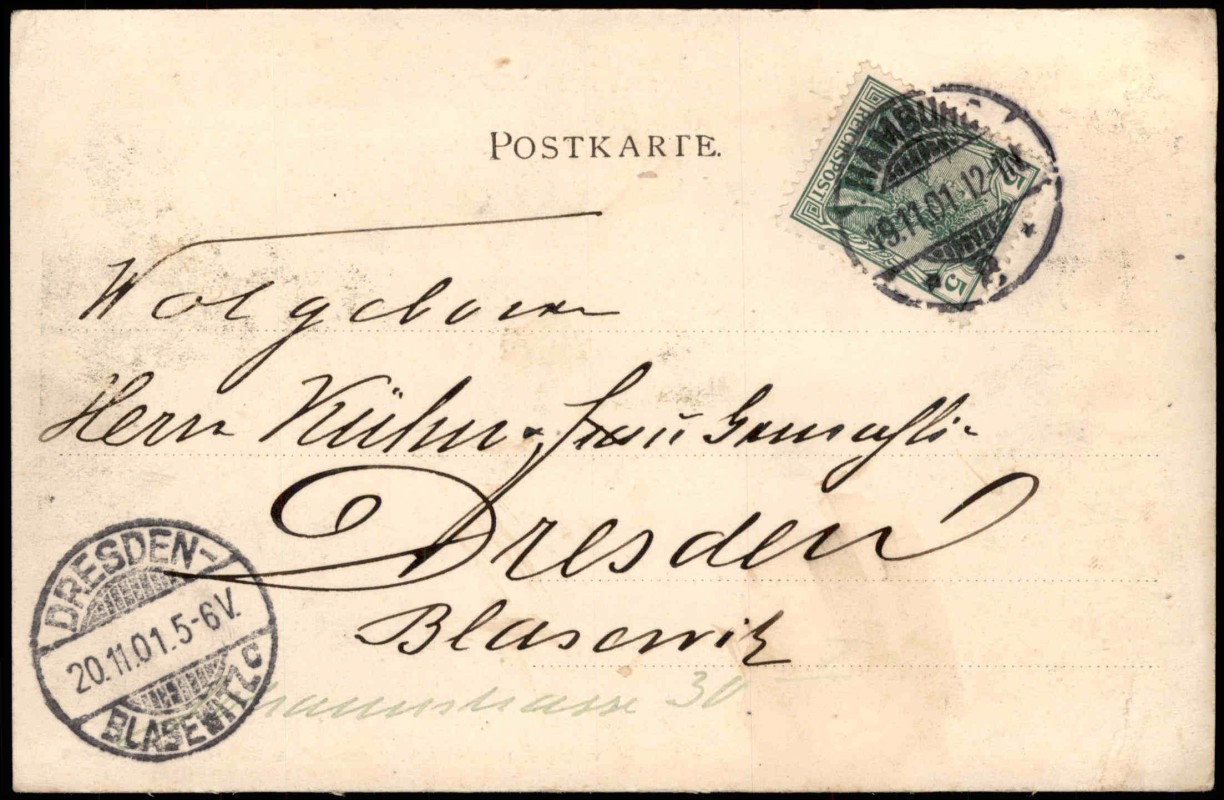 POSTKARTE.
REICHSPOST
5
5
HAMBURG
19.11.01.12-1N
* 8. *
Wolgeboren
Herrn Kühn u. Frau Gemahlin
Dresden
Blasewitz
strasse 30
DRESDEN-
20.11.01.5-6V.
BLASEWITZ c